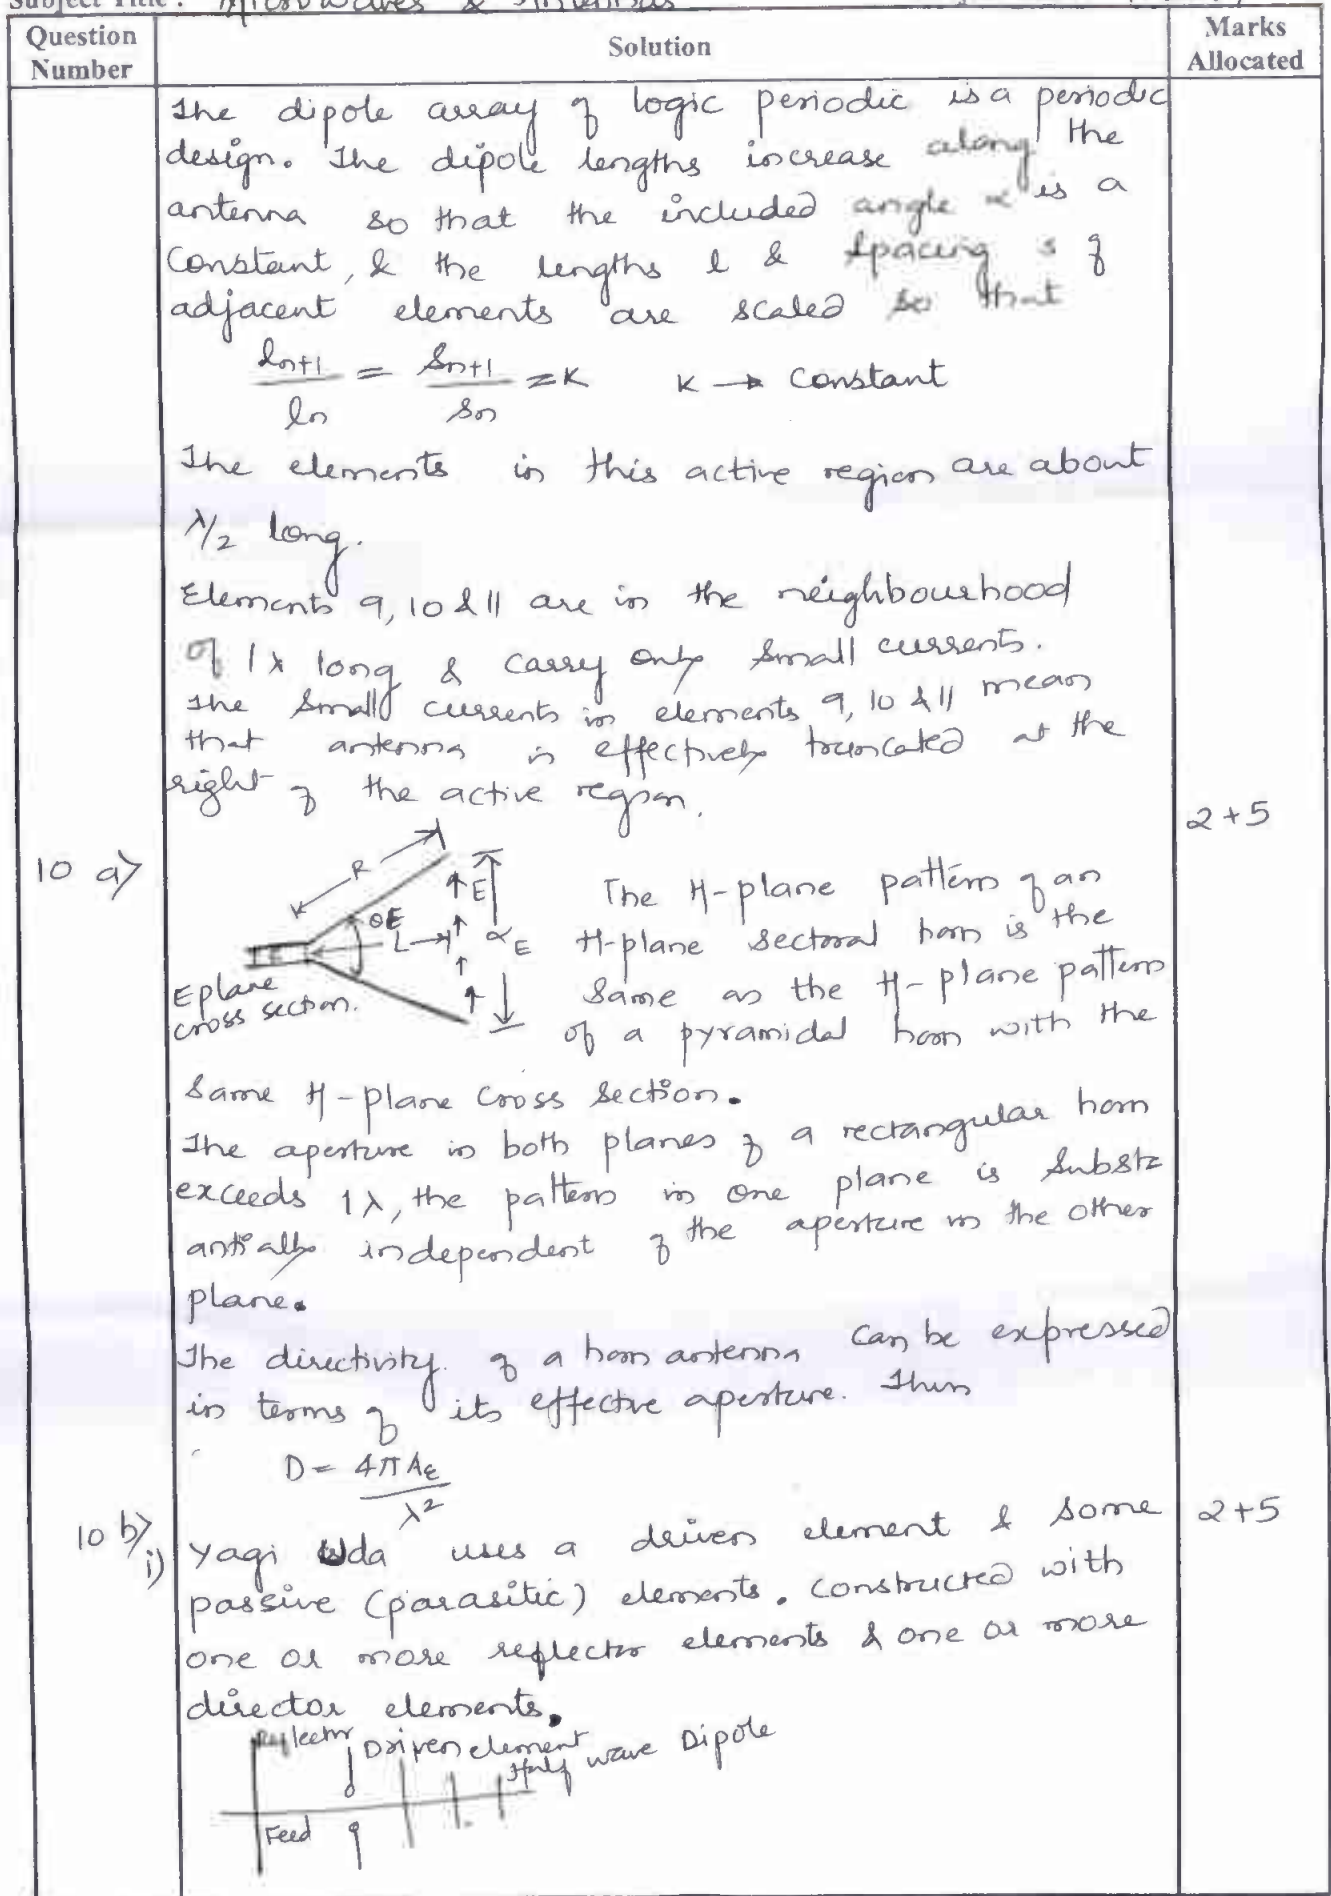 Subject Title : Microwaves & Antennas
Question Number
Solution
Marks Allocated
The dipole array of logic periodic is a periodic
design. The dipole lengths increase along the
antenna so that the included angle α is a
Constant, & the lengths l & spacing s of
adjacent elements are scaled so that
ln+1/ln = Sn+1/Sn = K    K → Constant
The elements in this active region are about
λ/2 long.
Elements 9, 10 & 11 are in the neighbourhood
of 1λ long & carry only small currents.
The small currents in elements 9, 10 & 11 mean
that antenna is effectively truncated at the
right of the active region.
2+5
10 a)
R
θE
L
E
αE
E plane
cross section.
The H-plane pattern of an
H-plane sectoral horn is the
Same as the H-plane pattern
of a pyramidal horn with the
Same H-plane Cross Section.
The aperture in both planes of a rectangular horn
exceeds 1λ, the pattern in one plane is Subst
antially independent of the aperture in the other
plane.
The directivity of a horn antenna can be expressed
in terms of its effective aperture. Thus
D = 4πAε/λ²
10 b) i)
Yagi Uda uses a driven element & some
2+5
passive (parasitic) elements. constructed with
one or more reflector elements & one or more
director elements.
Reflector
Driven element
Half wave Dipole
Feed